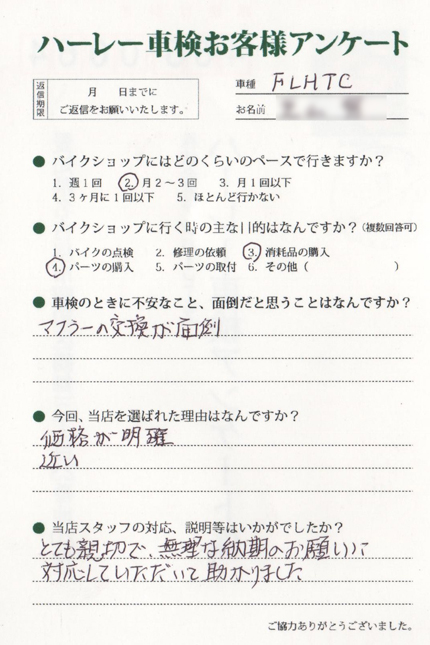 ハーレー車検お客様アンケート
返信期限
月 日までに
ご返信をお願いいたします。
車種 FLHTC
お名前
● バイクショップにはどのくらいのペースで行きますか?
1. 週1回 2. 月2〜3回 3. 月1回以下
4. 3ヶ月に1回以下 5. ほとんど行かない
● バイクショップに行く時の主な目的はなんですか?(複数回答可)
1. バイクの点検 2. 修理の依頼 3. 消耗品の購入
4. パーツの購入 5. パーツの取付 6. その他( )
● 車検のときに不安なこと、面倒だと思うことはなんですか?
マフラーの交換が面倒
● 今回、当店を選ばれた理由はなんですか?
価格が明確
近い
● 当店スタッフの対応、説明等はいかがでしたか?
とても親切で、無理な納期のお願いに
対応していただいて助かりました
ご協力ありがとうございました。